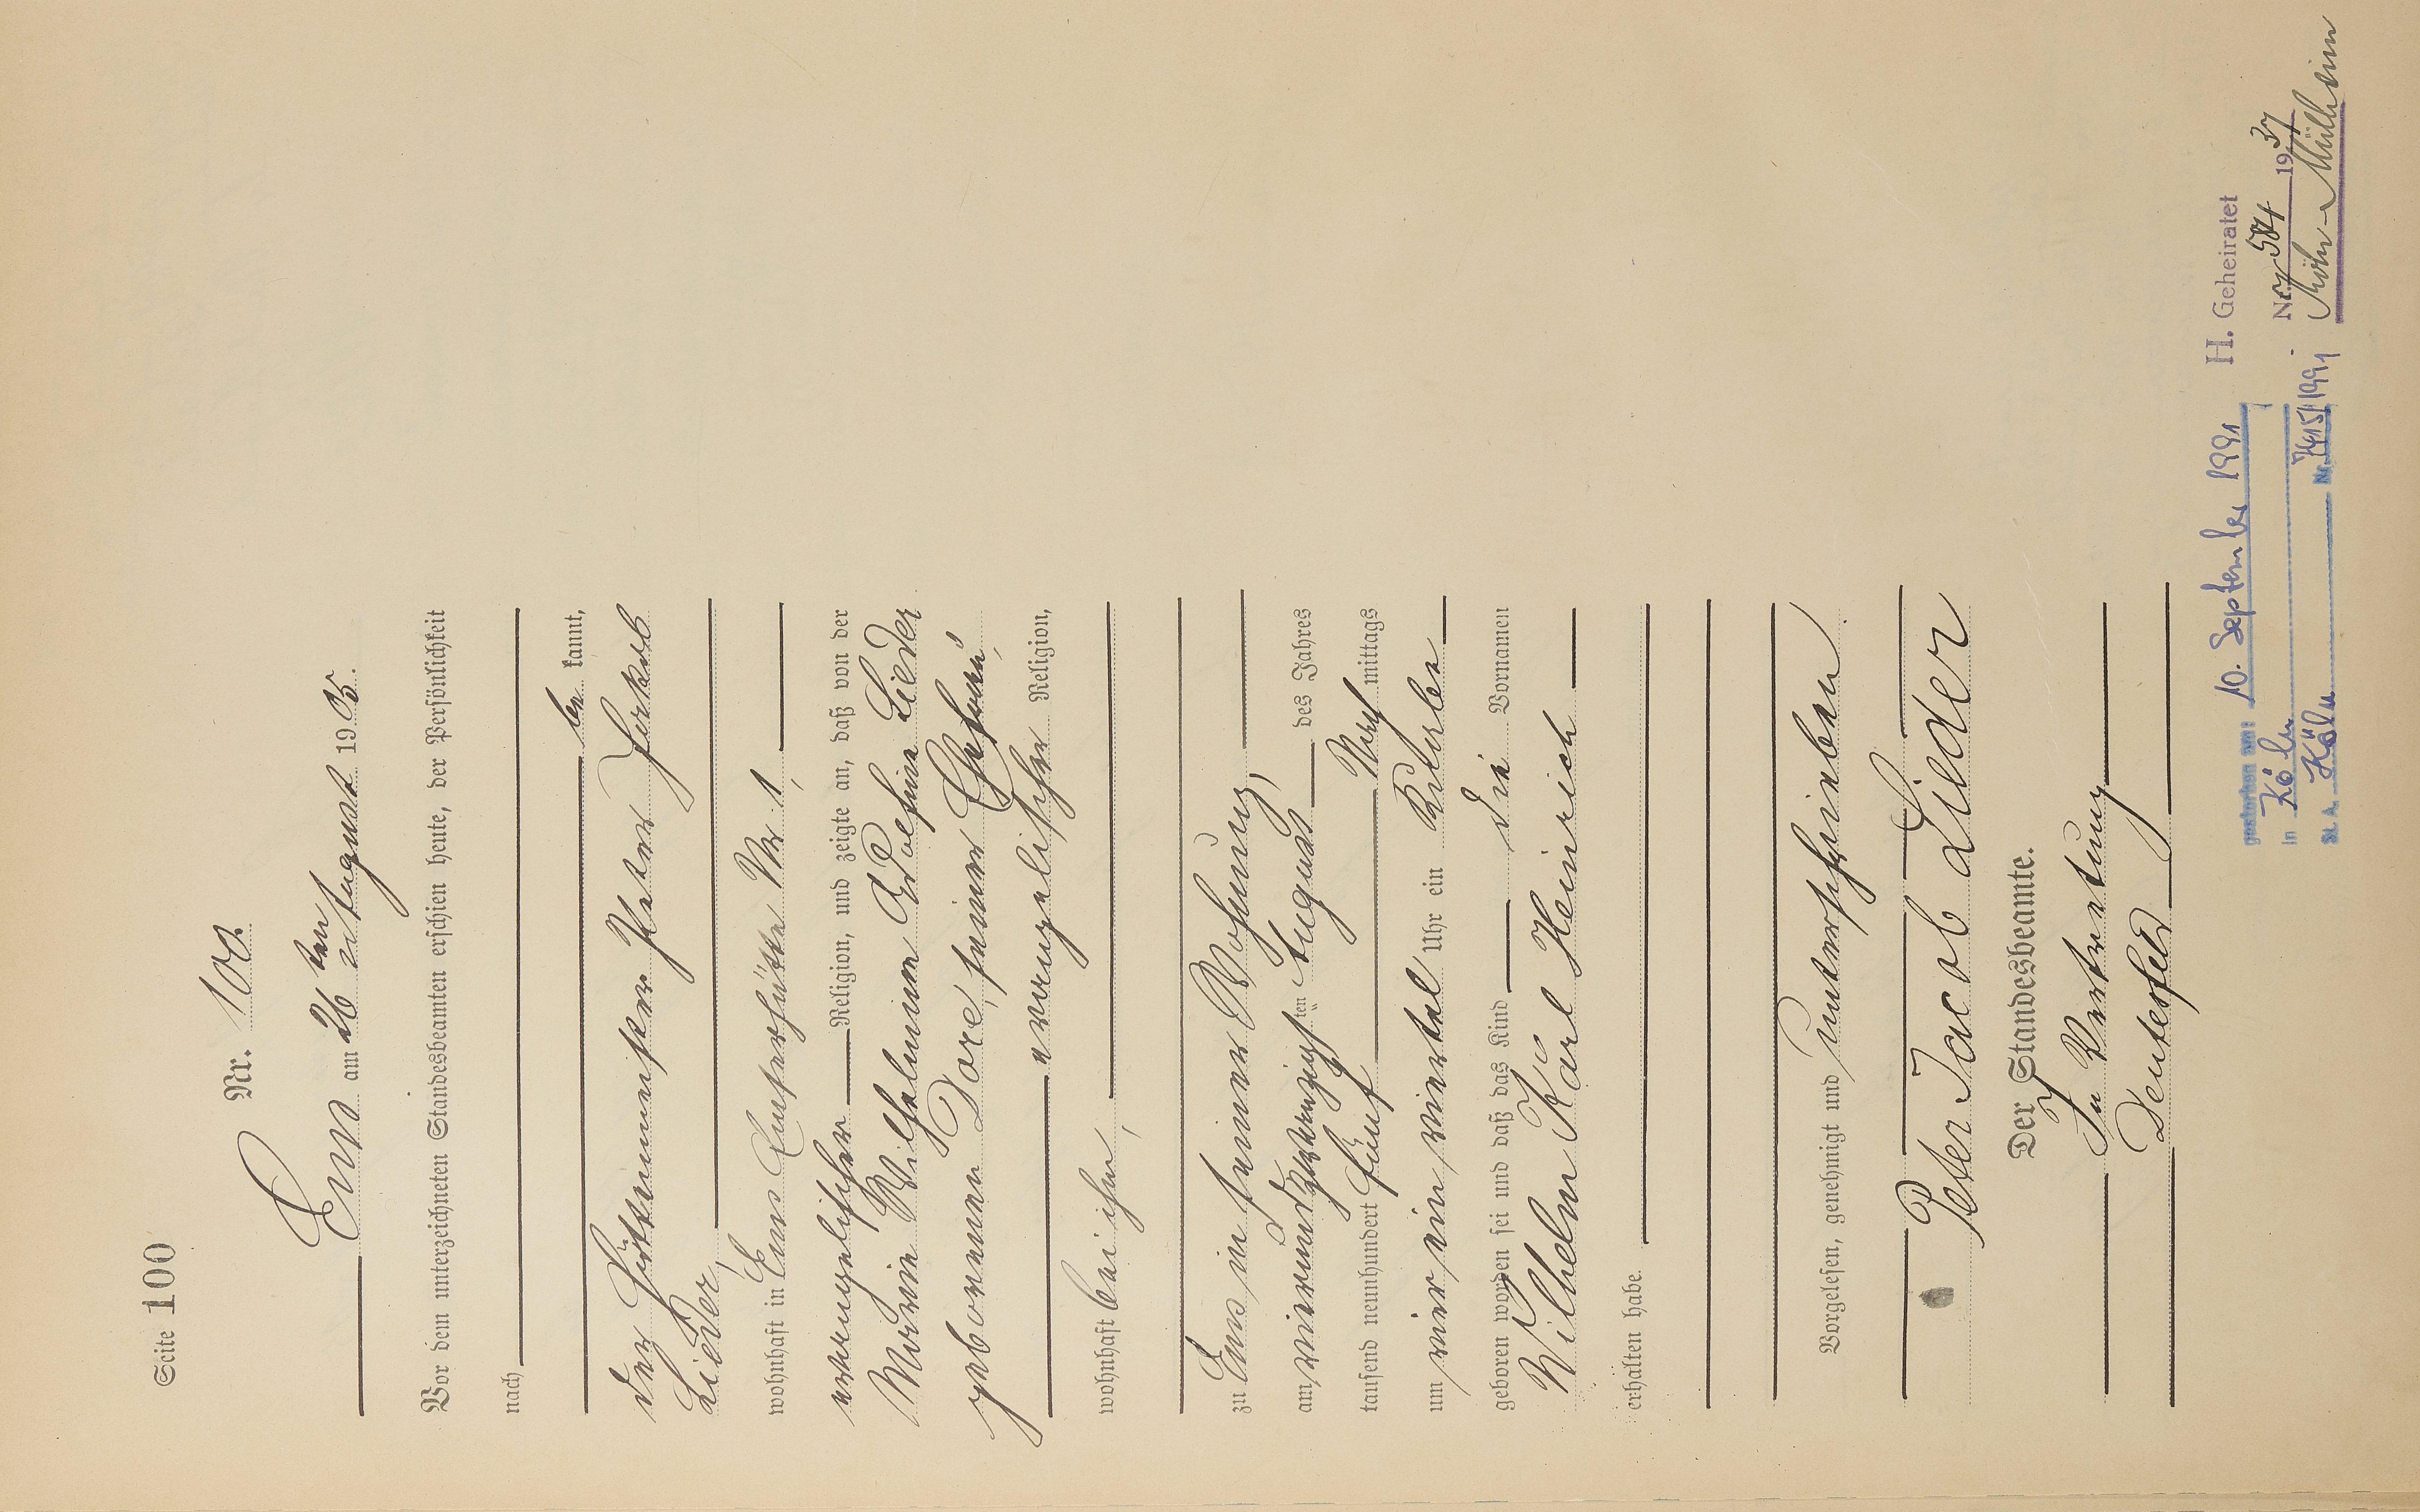 Seite 100
Nr. 100.
Ems am 26ten August 1905.
Vor dem unterzeichneten Standesbeamten erschien heute, der Persönlichkeit
nach
be kannt,
der Hüttenmeister Peter Jakob
Lieder,
wohnhaft in Ems Emserhütte Nr. 1,
evangelischer Religion, und zeigte an, daß von der
Maria Wilhelmine Josefine Lieder
geborenen Doré, seiner Ehefrau,
evangelischer Religion,
wohnhaft bei ihm,
zu Ems in seiner Wohnung,
am vierundzwanzigsten August des Jahres
tausend neunhundert fünf Nach mittags
um vier ein viertel Uhr ein Knabe
geboren worden sei und daß das Kind die Vornamen
Wilhelm Karl Heinrich
erhalten habe.
Vorgelesen, genehmigt und unterschrieben
Peter Jacob Lieder
Der Standesbeamte.
In Vertretung
gestorben am: 10. September 1991
in Köln
St. A. Köln Nr. 7415/1991
H. Geheiratet
Nr. 584 1937
Köln-Mülheim